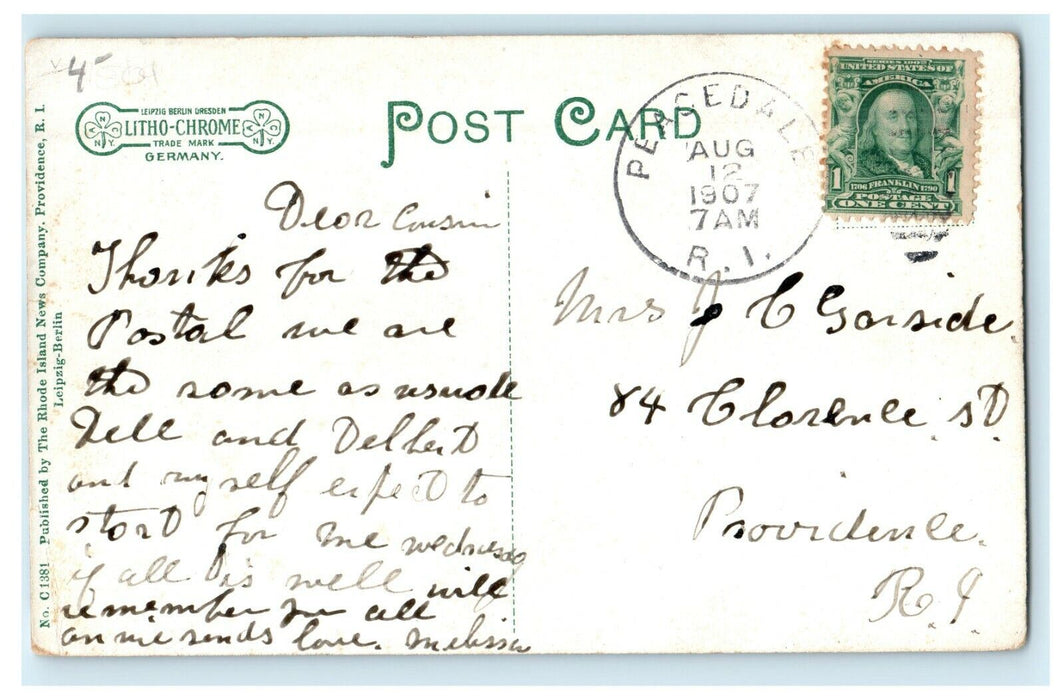 4
LEIPZIG BERLIN DRESDEN
LITHO-CHROME
TRADE MARK
GERMANY.
N.Y. N.Y.
POST CARD
PEACEDALE
AUG
12
1907
7AM
R. I.
SERIES 1902
UNITED STATES OF
AMERICA
1 1
1706 FRANKLIN 1790
POSTAGE
ONE CENT
Dear Cousin
Thanks for the
Postal we are
the same as usuale
Dell and Delbert
and my self expect to
start for me wednesday
if all is well will
remember you all
annie sends love. Melissa
Mrs J C Garside
84 Clarence St.
Providence.
R. I
No. C 1381 Published by The Rhode Island News Company, Providence, R. I.
Leipzig-Berlin